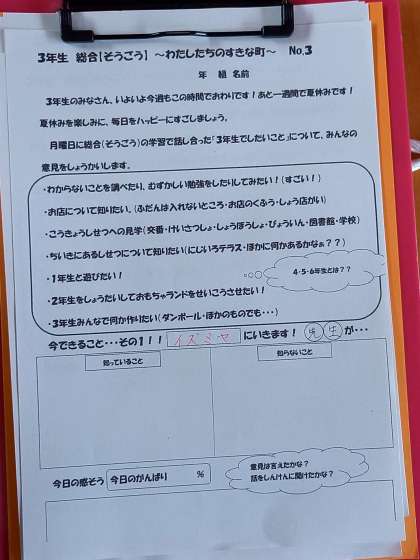 3年生 総合【そうごう】 ~わたしたちのすきな町~ No.3
年 組 名前
3年生のみなさん、いよいよ今週もこの時間でおわりです！あと一週間で夏休みです！
夏休みを楽しみに、毎日をハッピーにすごしましょう。
月曜日に総合(そうごう)の学習で話し合った「3年生でしたいこと」について、みんなの
意見をしょうかいします。
・わからないことを調べたり、むずかしい勉強をしたりしてみたい！(すごい！)
・お店について知りたい。(ふだんは入れないところ・お店のくふう・しょう店がい)
・こうきょうしせつへの見学(交番・けいさつしょ・しょうぼうしょ・びょういん・図書館・学校)
・ちいきにあるしせつについて知りたい(にじいろテラス・ほかに何かあるかなぁ？？)
・1年生と遊びたい！
4・5・6年生とは？？
・2年生をしょうたいしておもちゃランドをせいこうさせたい！
・3年生みんなで何か作りたい(ダンボール・ほかのものでも・・・)
今できること・・・その1！！ イズミヤ にいきます！ 先生 が・・・
知っていること
知らないこと
今日の感そう 今日のがんばり %
意見は言えたかな？
話をしんけんに聞けたかな？